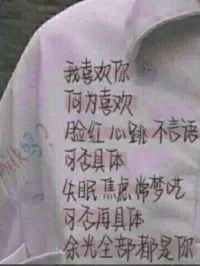 我喜欢你
何为喜欢
脸红心跳不言语
可否具体
失眠焦虑常梦呓
可否再具体
余光全部都是你